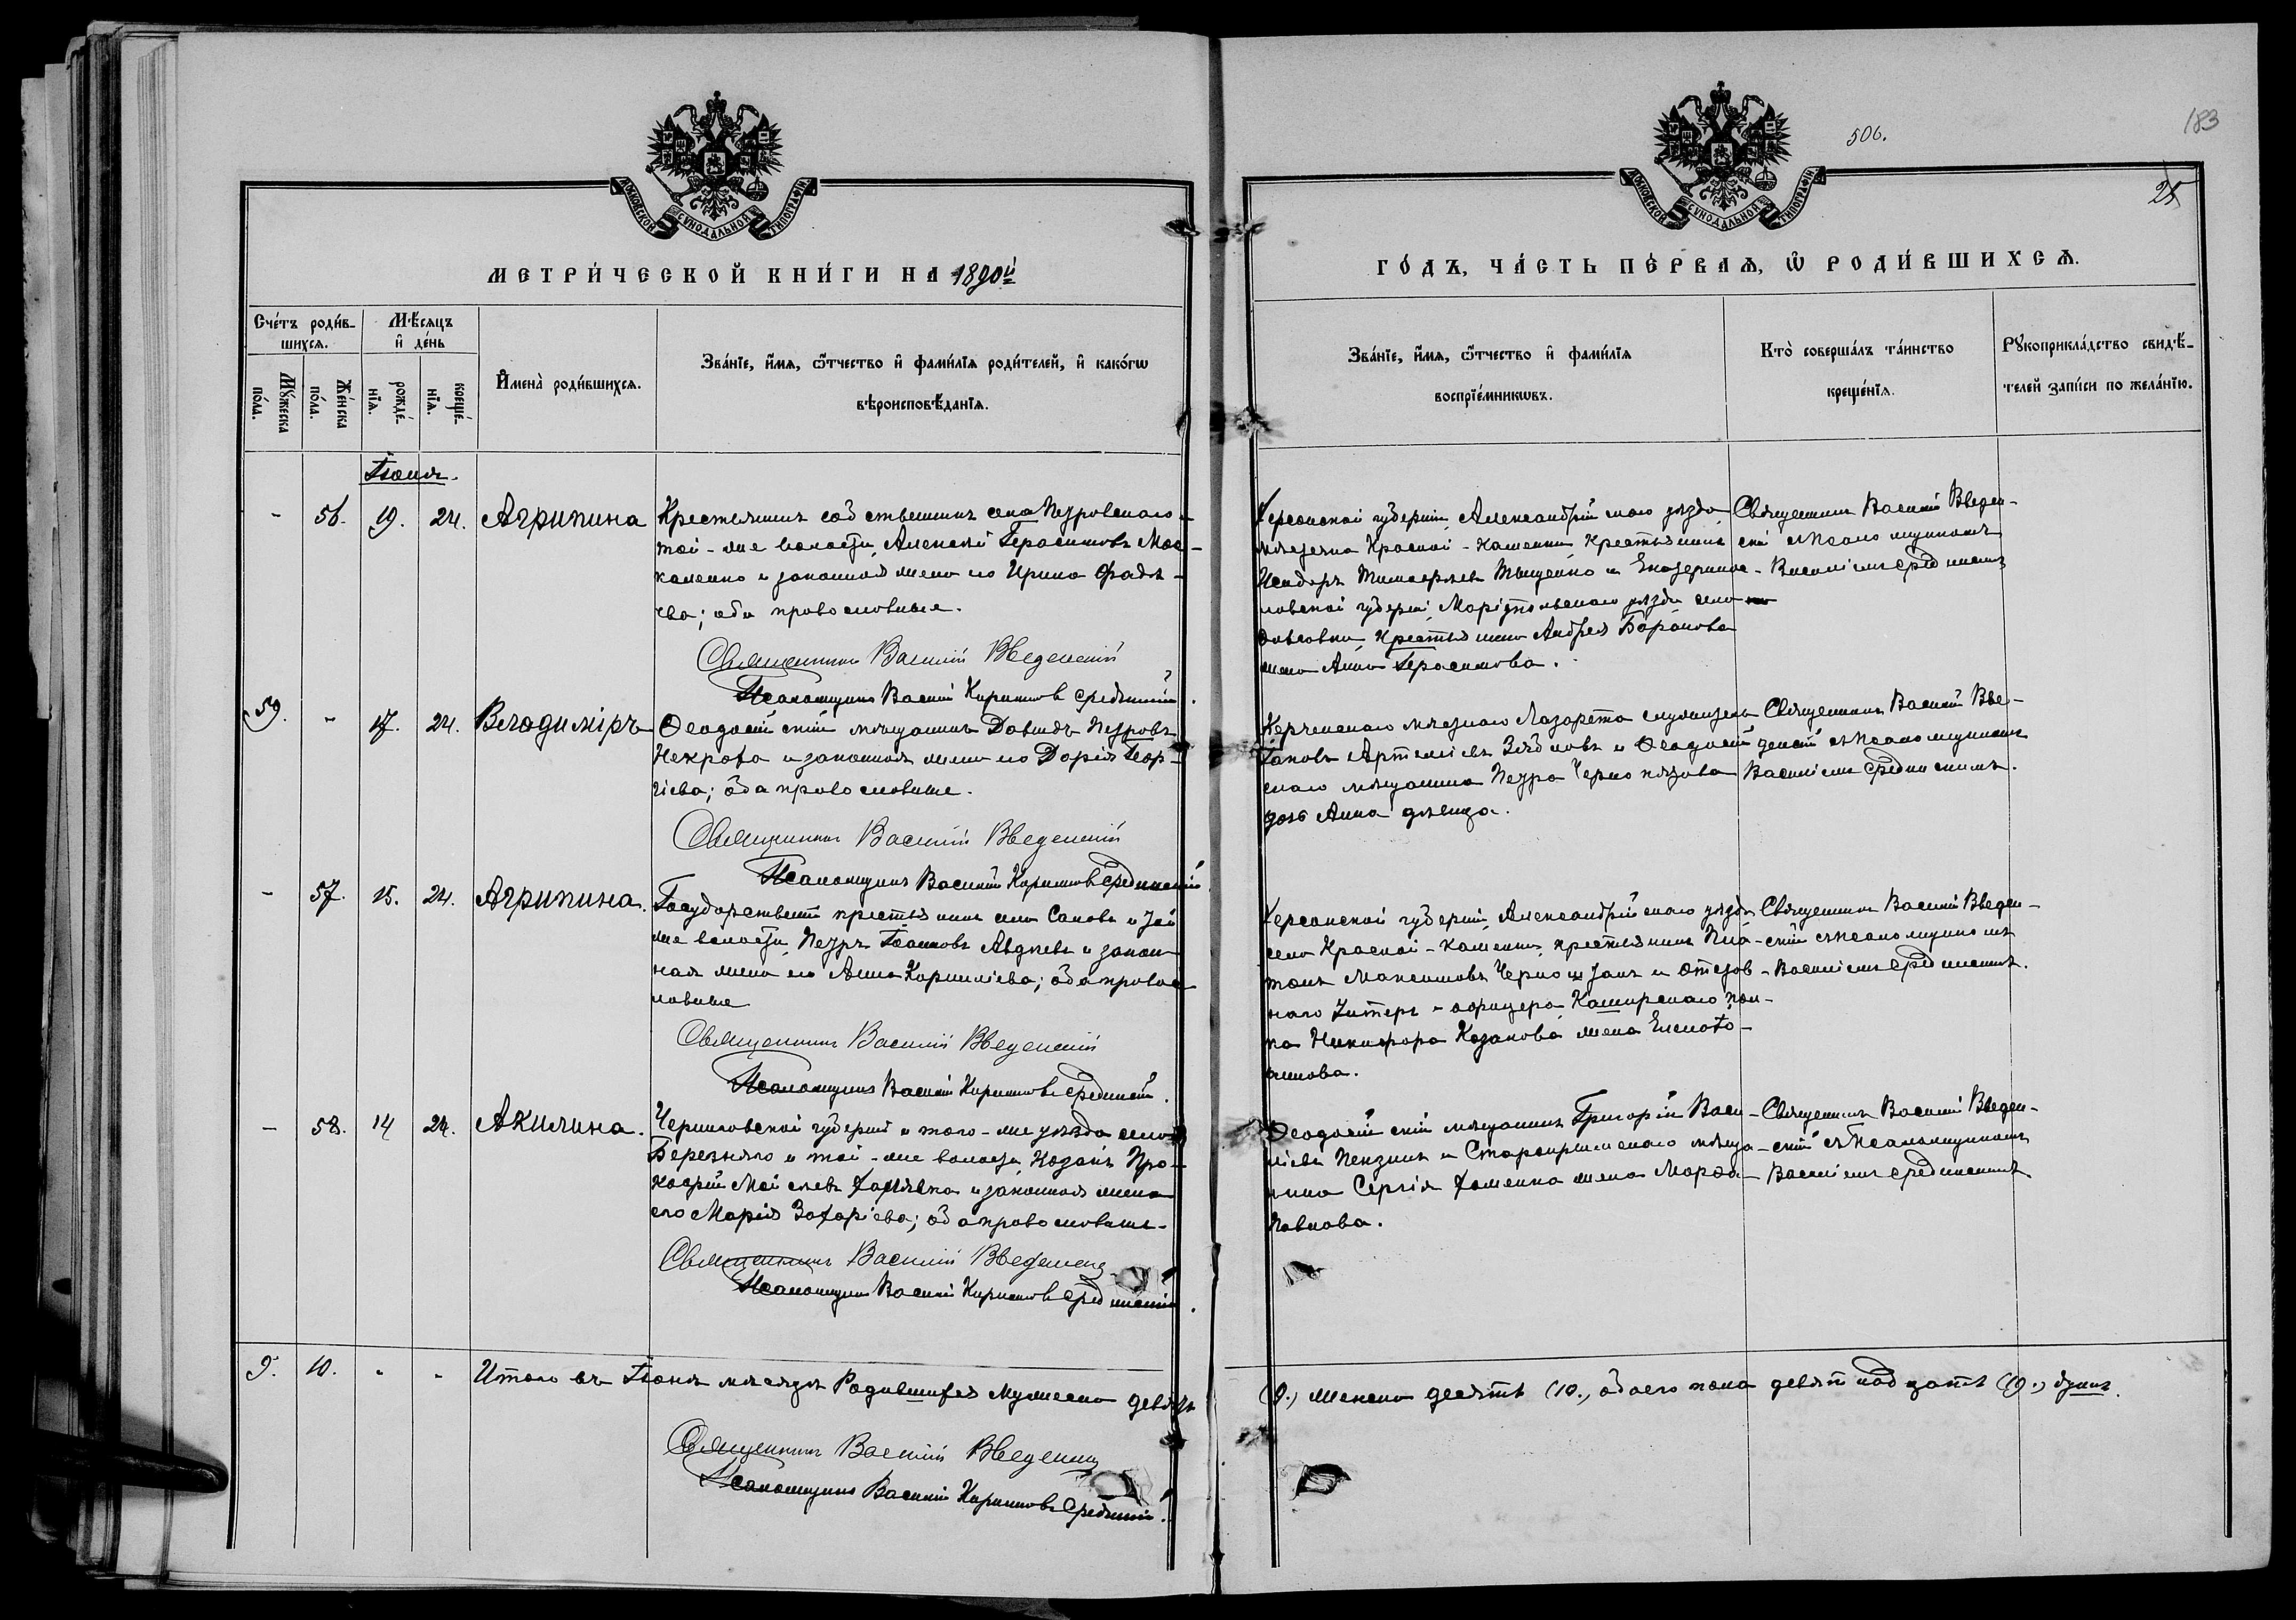 МОСКОВСКОЙ СѴНОДАЛЬНОЙ ТИПОГРАФІИ
МЕТРИ́ЧЕСКОЙ КНИ́ГИ НА 1890й
Сче́тъ роди́в-
шихся.
Мѣ́сяцъ
и҆ де́нь
Мꙋ́жеска
по́ла.
Же́нска
по́ла.
рожде́-
нїя.
креще́-
нїя.
И҆мена̀ роди́вшихся.
Зва́нїе, и҆́мя, ѻ҆́тчество и҆ фами́лїя роди́телей, и҆ како́гѡ
вѣроисповѣ́данїя.
Іюнь.
- 56. 19. 24. Агрипина
Крестьянинъ собственникъ села Петровскаго и
той-же волости, Алексѣй Герасимовъ Мос-
каленко и законная жена его Ирина Фадѣ-
ева; оба православные.
Священникъ Василій Введенскій
Псаломщикъ Василій Кириловъ Срединскій.
59. - 17. 24. Владиміръ
Ѳеодосійскій мѣщанинъ Давидъ Петровъ
и законная жена его Дарія Геор-
гіева; оба православные.
Священникъ Василій Введенскій
Псаломщикъ Василій Кириловъ Срединскій
- 57. 15. 24. Агрипина.
Государственный крестьянинъ села и той
же волости, Петръ Іоанновъ Авдѣевъ и закон-
ная жена его Анна Корниліева; оба правос-
лавные
Священникъ Василій Введенскій
Псаломщикъ Василій Кириловъ Срединскій.
- 58. 14 24. Акилина.
Черниговской губерніи и того-же уѣзда села
Березняго и той-же волости, Козакъ Про-
кофій Моѵсеевъ и законная жена
его Марія Захаріева; оба православные.
Священникъ Василій Введенскій
Псаломщикъ Василій Кириловъ Срединскій.
9. 10. - - Итого въ Іюнѣ мѣсяцѣ Родившихся мужеска девять
Священникъ Василій Введенскій
Псаломщикъ Василій Кириловъ Срединскій.
506.
183
25
МОСКОВСКОЙ СѴНОДАЛЬНОЙ ТИПОГРАФІИ
ГО́ДЪ, ЧА́СТЬ ПЕ́РВАЯ, Ѡ҆ РОДИ́ВШИХСЯ.
Зва́нїе, и҆́мя, ѻ҆́тчество и҆ фами́лїя
воспрїе́мникѡвъ.
Кто̀ соверша́лъ та́инство
креще́нїя.
Рꙋкоприкла́дство свидѣ́-
телей за́писи по жела́нїю.
Херсонской губерніи, Александрійскаго уѣзда,
мѣстечка Красной-Каменки, крестьянинъ
Исидоръ Тимофеевъ и Екатеринос-
лавской губерніи Маріупольскаго уѣзда села
крестьянина Андрея Баранова
жена Анна Герасимова.
Священникъ Василій Введен-
скій съ Псаломщикомъ
Василіемъ Срединскимъ
Керченскаго мѣстнаго Лазарета служитель
Іаковъ Артеміевъ и Ѳеодосій-
скаго мѣщанина Петра
дочь Анна дѣвица.
Священникъ Василій Вве-
денскій съ Псаломщикомъ
Василіемъ Срединскимъ.
Херсонской губерніи, Александрійскаго уѣзда
села Красной-Каменки, крестьянинъ Пла-
тонъ Максимовъ и Отстав-
наго Унтеръ-офицера Каширскаго пол-
ка Никифора Казакова жена Елисаве-
Священникъ Василій Введен-
скій съ Псаломщикомъ
Василіемъ Срединскимъ.
Ѳеодосійскій мѣщанинъ Григорій Васи-
ліевъ Пензинъ и Старокрымскаго мѣща-
нина Сергія Хоменка жена Марѳа
Павлова.
Священникъ Василій Введен-
скій съ Псаломщикомъ
Василіемъ Срединскимъ
(9.) женска десять (10.), обоего пола девятнадцать (19.) душъ.